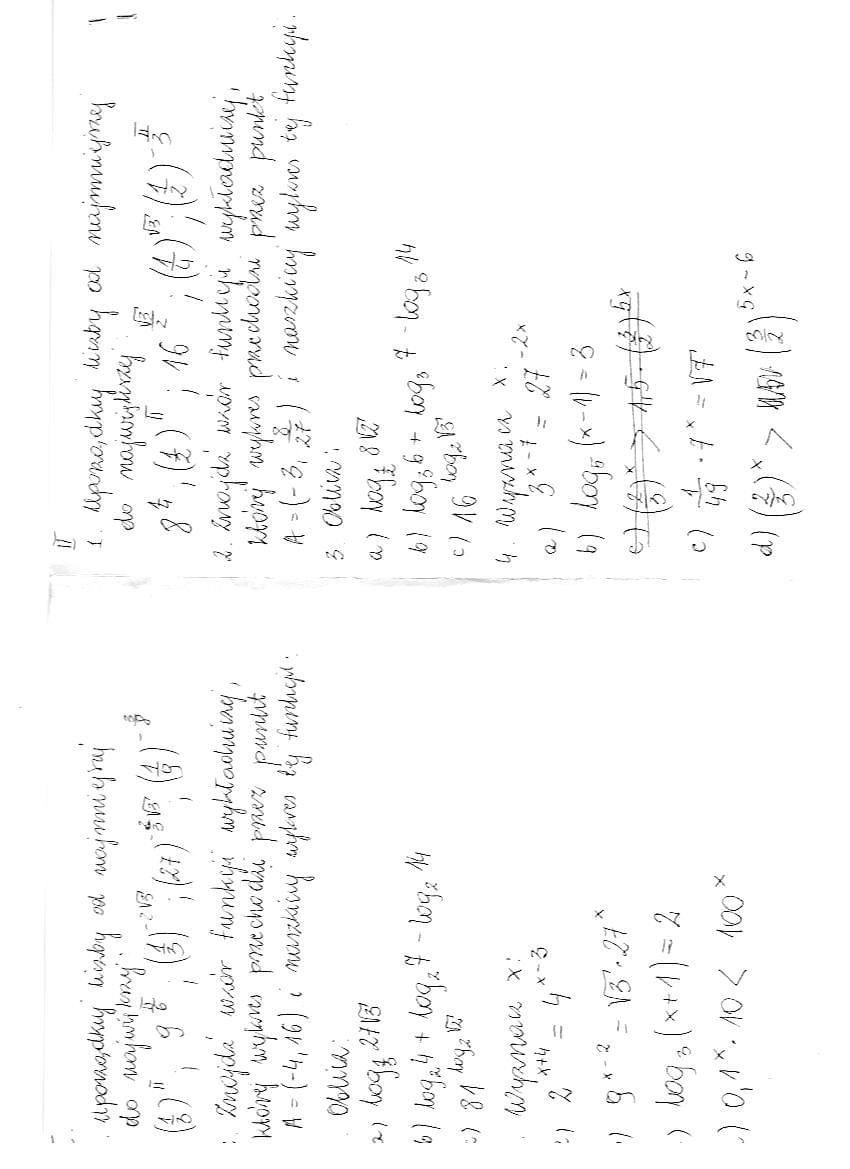 1. Uporządkuj liczby od najmniejszej
do największej:
(1/3)^π ; 9^(π/6) ; (1/3)^(-2√3) ; (27)^(-2/3 √3) ; (1/9)^(-3/8)
2. Znajdź wzór funkcji wykładniczej,
której wykres przechodzi przez punkt
A = (-4, 16) i naszkicuj wykres tej funkcji.
Oblicz:
a) log_(1/3) 27√3
b) log_2 4 + log_2 7 - log_2 14
c) 81^(log_2 √2)
Wyznacz x:
2^(x+4) = 4^(x-3)
) 9^(x-2) = √3 · 27^x
) log_3 (x+1) = 2
) 0,1^x · 10 < 100^x
II
1. Uporządkuj liczby od najmniejszej
do największej:
8^(π/4) ; (1/2)^π ; 16^(√3/2) ; (1/4)^√3 ; (1/2)^(-π/3)
2. Znajdź wzór funkcji wykładniczej,
której wykres przechodzi przez punkt
A = (-3, 8/27) i naszkicuj wykres tej funkcji.
3. Oblicz:
a) log_(1/2) 8√2
b) log_3 6 + log_3 7 - log_3 14
c) 16^(log_2 √3)
4. Wyznacz x:
a) 3^(x-7) = 27^(-2x)
b) log_5 (x-1) = 3
c) (2/3)^x > 1,5 · (3/2)^(5x)
c) 1/49 · 7^x = √7
d) (2/3)^x > (3/2)^(5x-6)